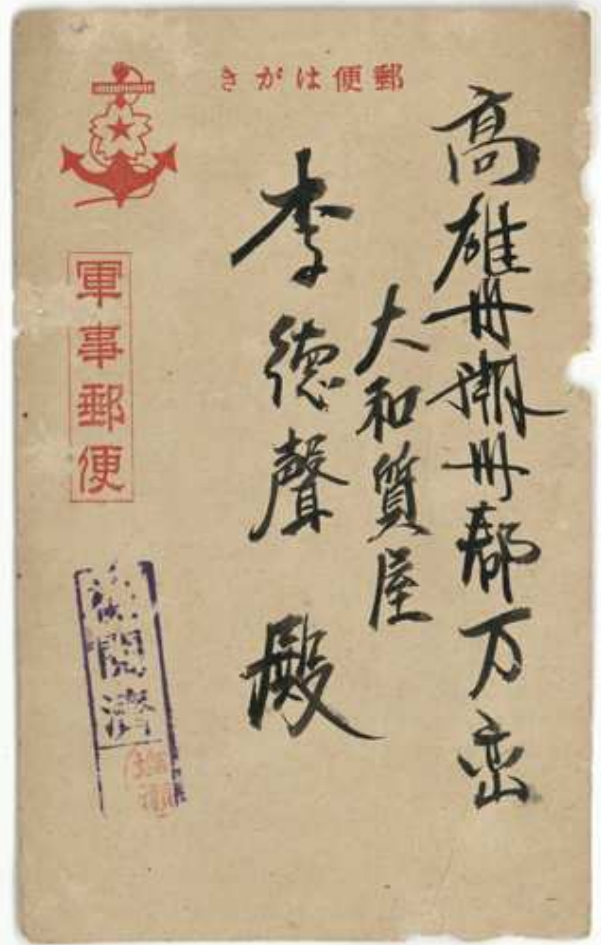 郵便はがき
高雄州潮州郡万峦
大和質屋
李徳聲 殿
軍事郵便
閲濟